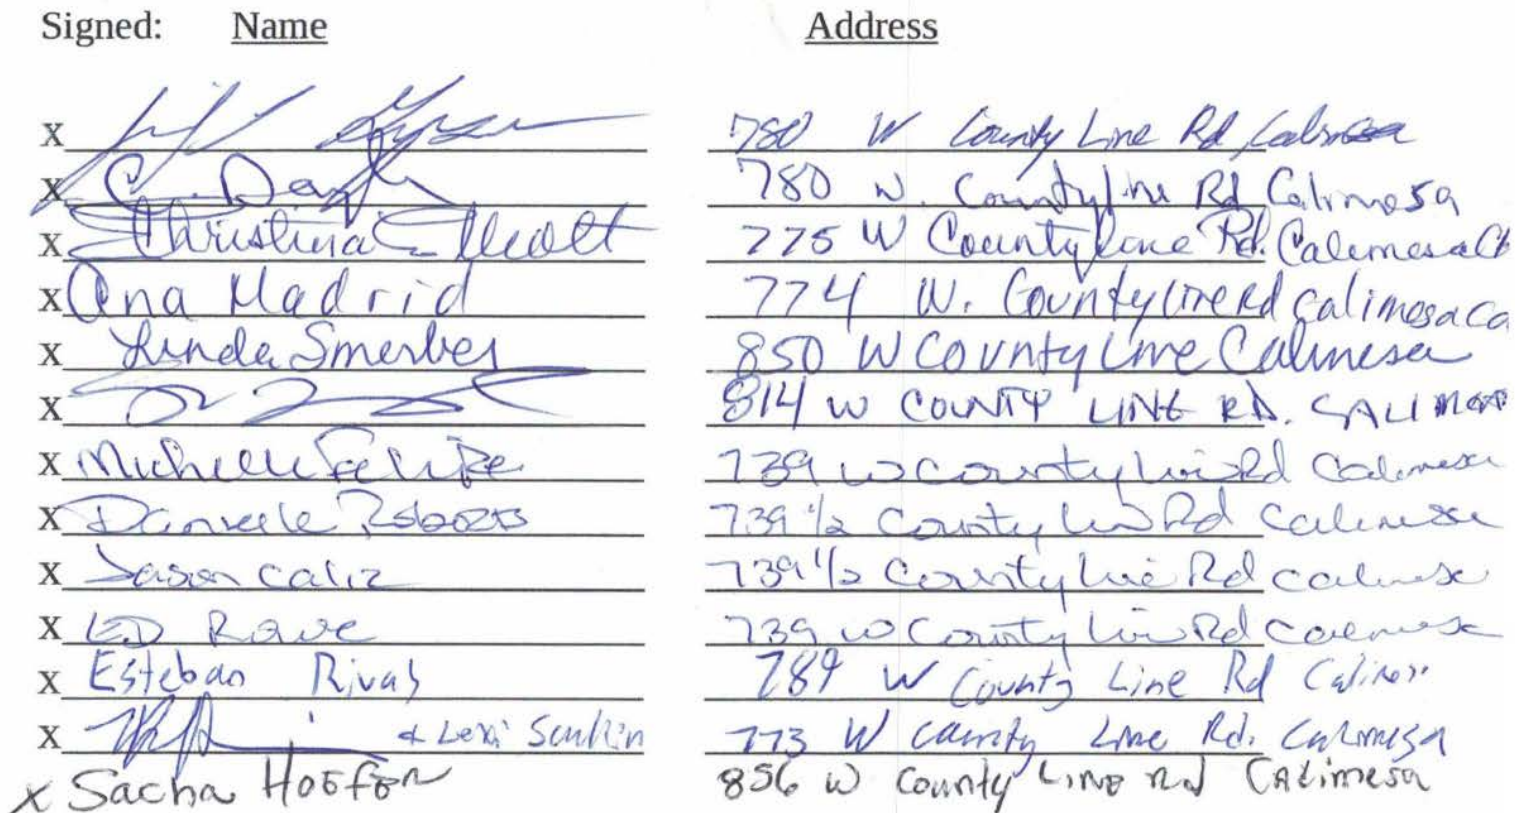 Signed: Name Address
X 780 W County Line Rd, Calimesa
X C. 780 W. Countyline Rd Calimesa
X Christina Elliott 775 W County Line Rd. Calimesa CA
X Ana Madrid 774 W. County line Rd calimesa ca
X Linda Smerber 850 W County Line Calimesa
X 814 W COUNTY LINE RD. CALIMESA
X Michelle Felipe 739 W County Line Rd Calimesa
X Danielle 739 1/2 County Line Rd Calimesa
X Jason Caliz 739 1/2 County Line Rd Calimesa
X ED Rave 739 W County Line Rd Calimesa
X Esteban Rivas 789 W County Line Rd Calimesa
X & Lexi 773 W County Line Rd. Calimesa
X Sacha Hoefer 856 W County Line Rd Calimesa